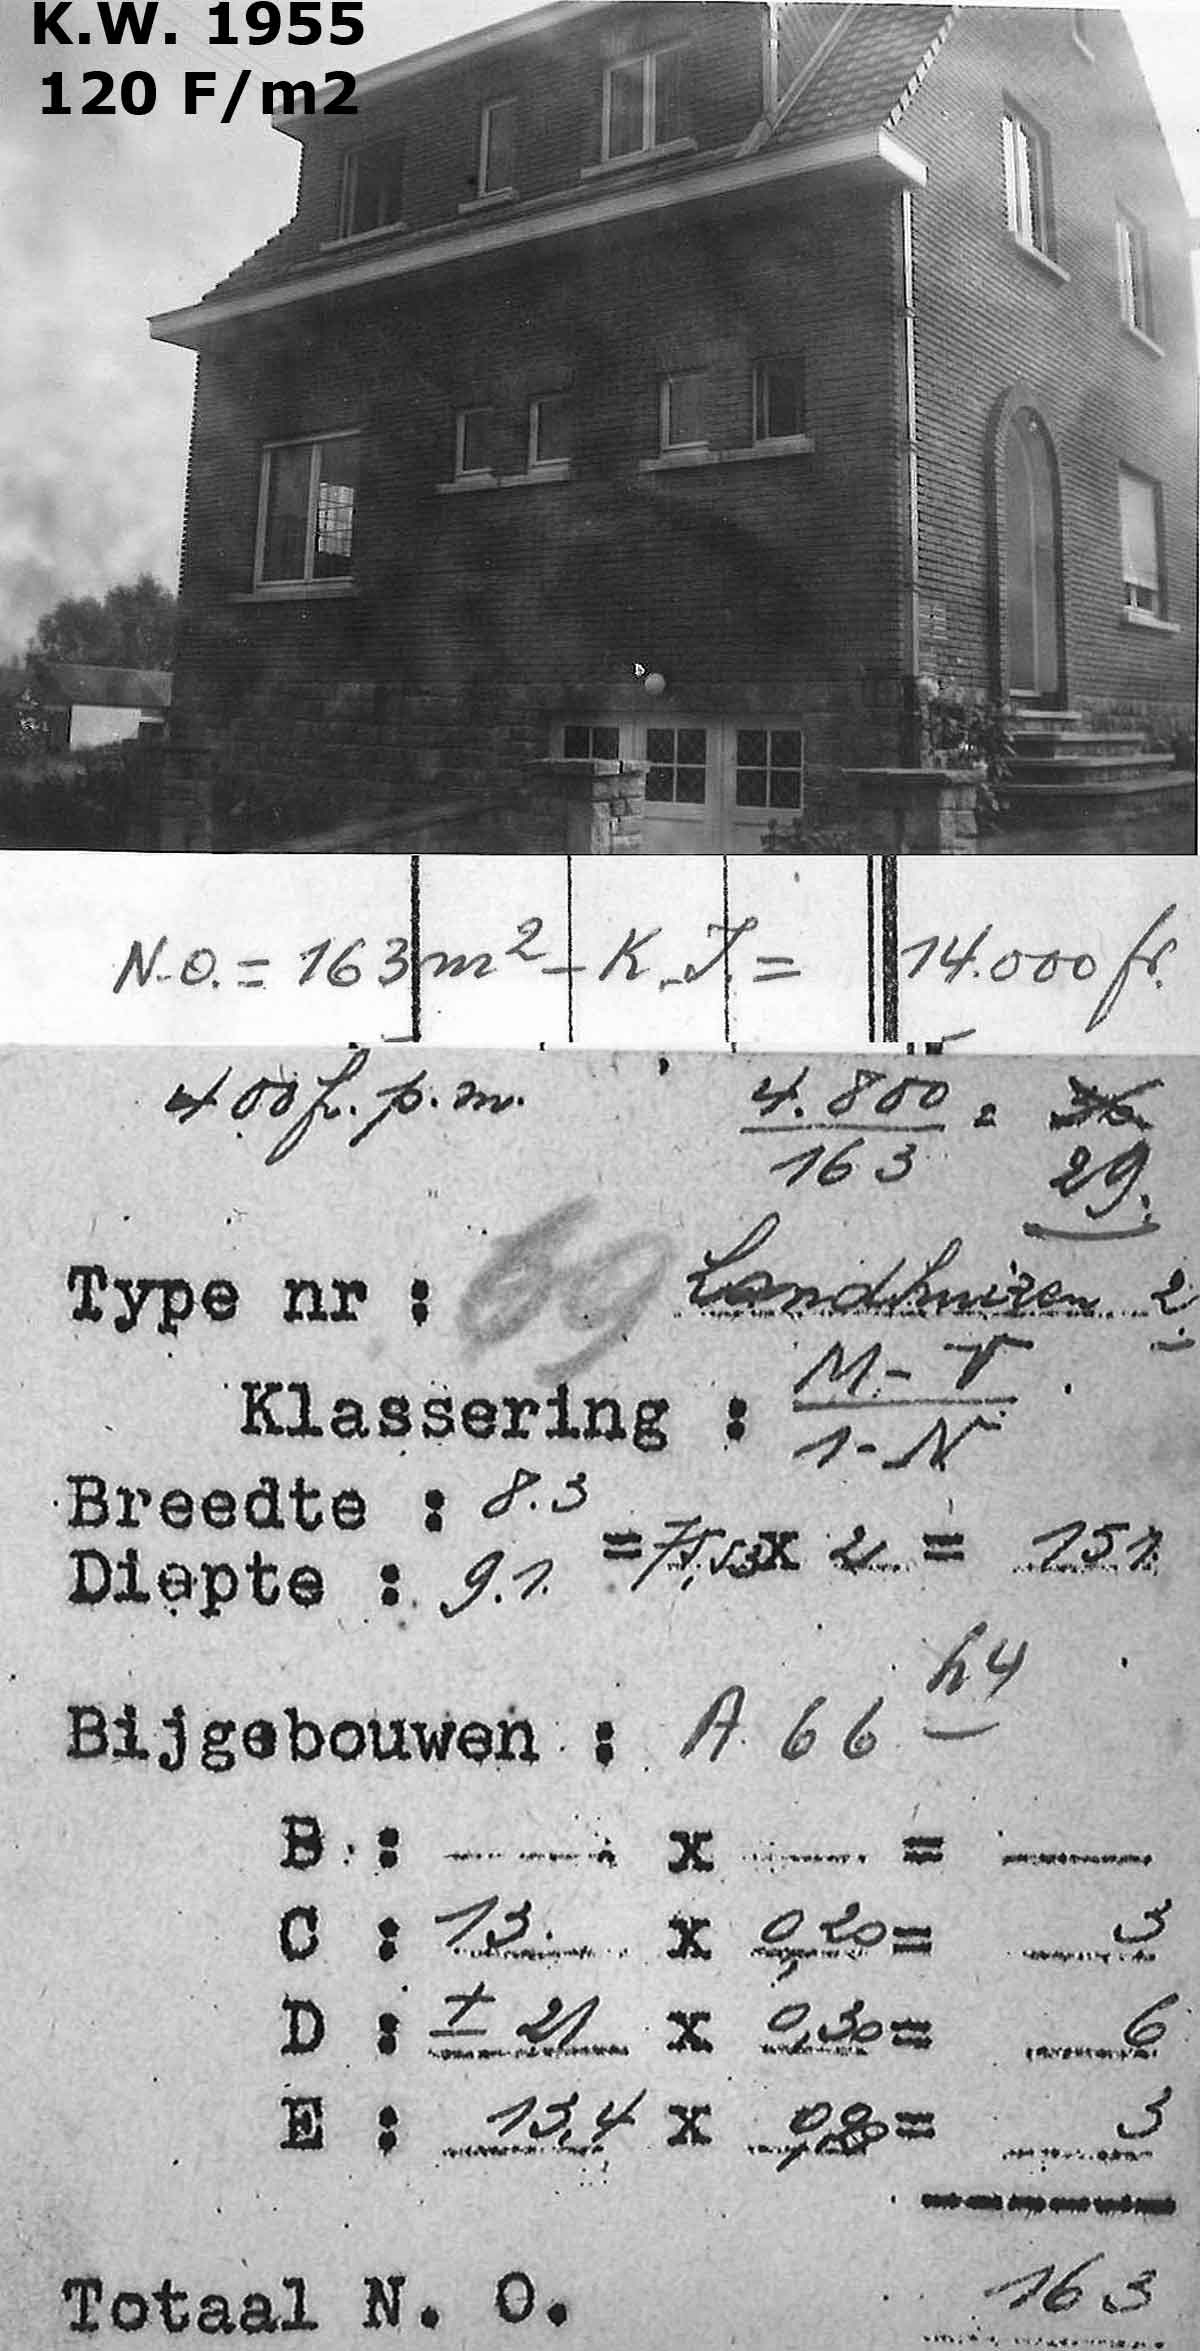 K.W. 1955
120 F/m2
N.O. = 163 m2 - K.I. = 14.000 fr.
400 fr. p.m. 4.800 = 36
163 29.
Type nr : 69 Landhuizen 2
Klassering : M - V
1 - N
Breedte : 8.3
Diepte : 9.1 = 75,53 x 2 = 151
h4
Bijgebouwen : A. 66
B : x =
C : 13. x 0,20 = 3
D : ± 21 x 0,30 = 6
E : 13,4 x 0,20 = 3
Totaal N. O. 163